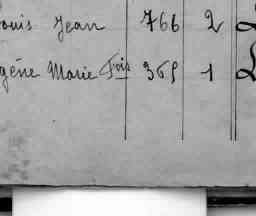 ouis Jean 766 2
gène Marie Fois 365 1